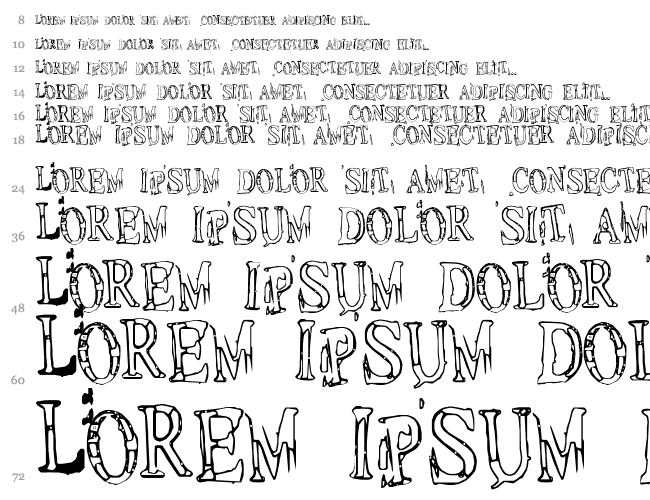 8 LOREM IPSUM DOLOR SIT AMET, CONSECTETUER ADIPISCING ELIT...
10 LOREM IPSUM DOLOR SIT AMET, CONSECTETUER ADIPISCING ELIT...
12 LOREM IPSUM DOLOR SIT AMET, CONSECTETUER ADIPISCING ELIT...
14 LOREM IPSUM DOLOR SIT AMET, CONSECTETUER ADIPISCING ELIT...
16 LOREM IPSUM DOLOR SIT AMET, CONSECTETUER ADIPISCING ELIT
18 LOREM IPSUM DOLOR SIT AMET, CONSECTETUER ADIPISC
24 LOREM IPSUM DOLOR SIT AMET, CONSECTE
36 LOREM IPSUM DOLOR SIT AM
48 LOREM IPSUM DOLOR
60 LOREM IPSUM DOL
72 LOREM IPSUM